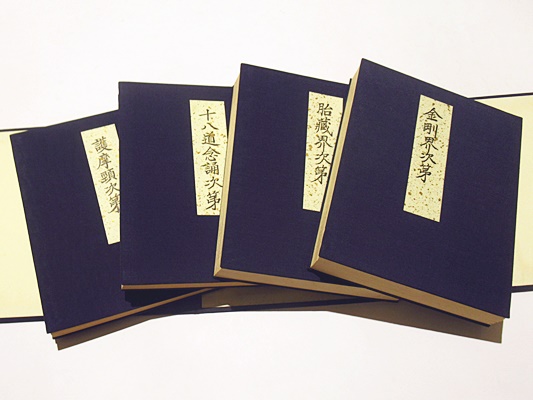 護摩顕次第
十八道念誦次第
胎藏界次第
金剛界次第